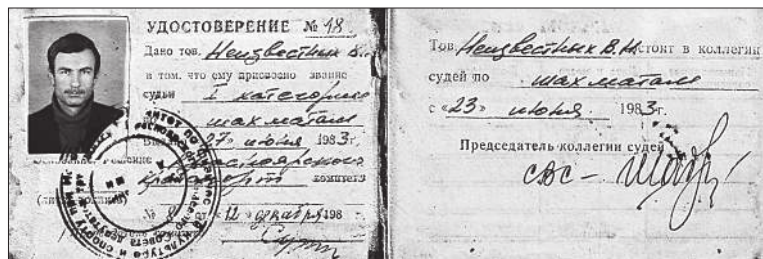 УДОСТОВЕРЕНИЕ № 48
Дано тов. Неизвестных В.
в том, что ему присвоено звание
судьи I категории
шахматам
27 июня 1983г.
Основание: Решение Красноярского
комитета
№ 8 от «12» декабря 198
Тов. Неизвестных В.Н. стоит в коллегии
судей по шахматам
с «23» июня 1983г.
Председатель коллегии судей